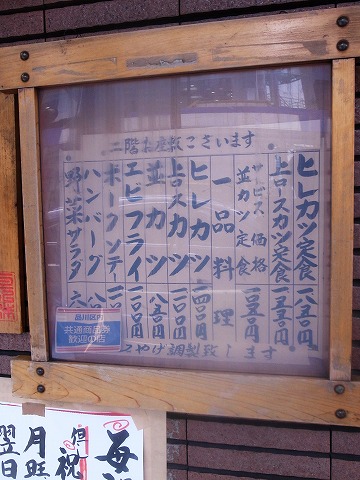 二階お座敷ございます
ヒレカツ定食 一八五〇円
上ロースカツ定食 一五五〇円
サービス価格
並カツ定食 一〇五〇円
一品料理
ヒレカツ 一四〇〇円
上ロースカツ 一一〇〇円
並カツ 八五〇円
エビフライ
ポークソテー
ハンバーグ 八
野菜サラダ 六
おみやげ調製致します
品川区内
共通商品券
歓迎の店
毎
但し祝
月
翌日